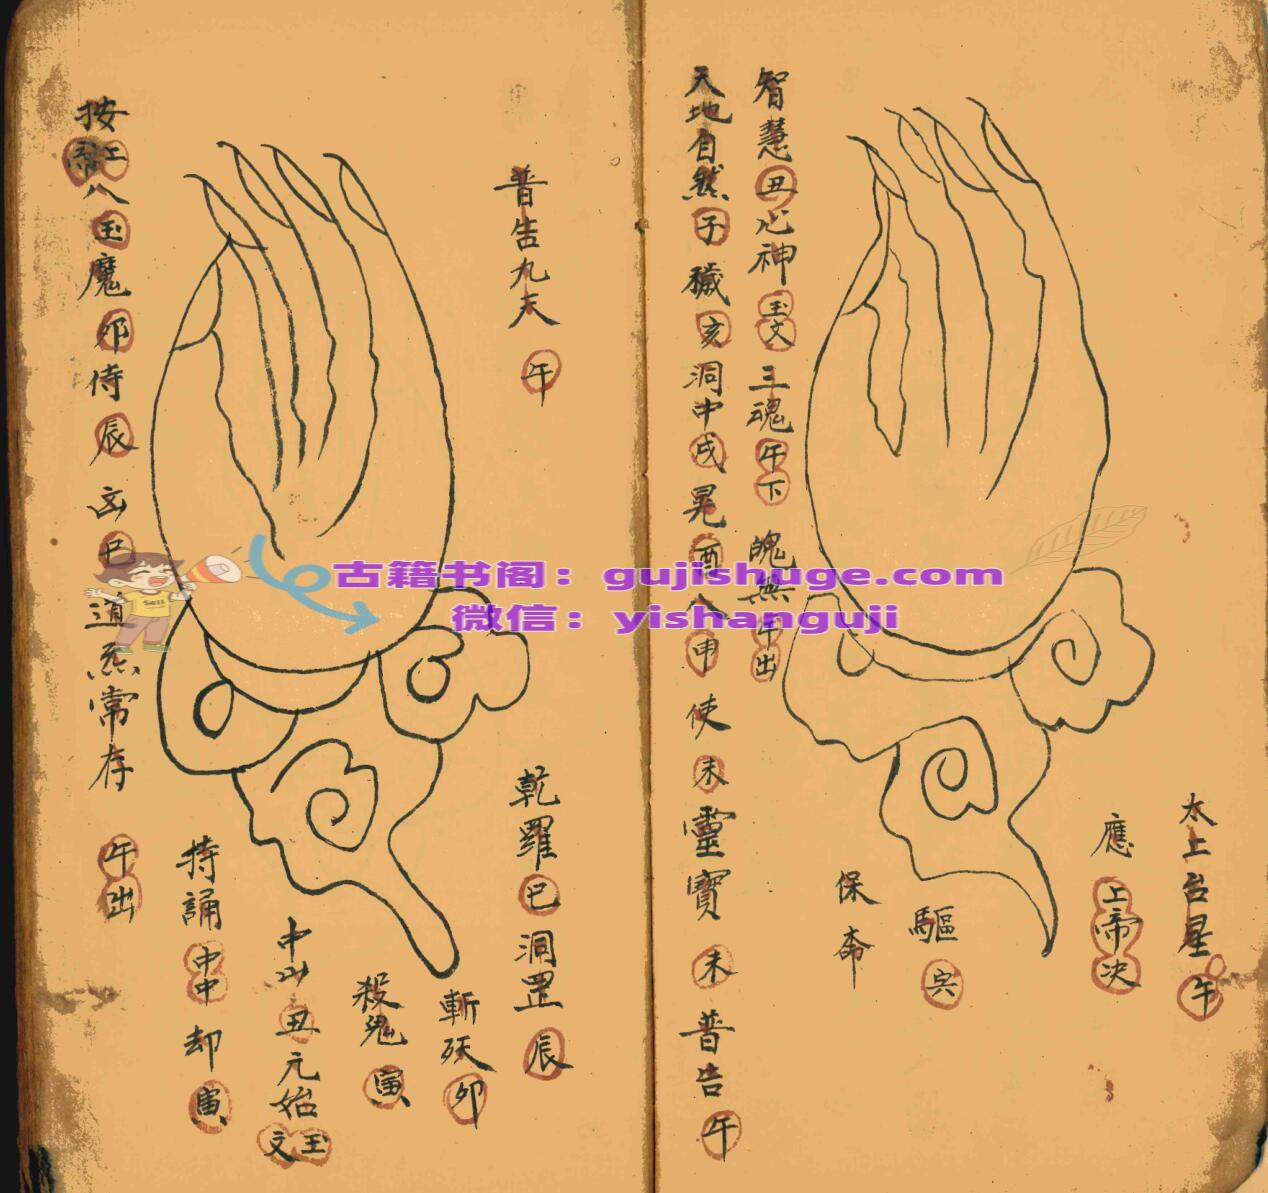 太上台星午
應上帝决
驅寅
保命
智慧丑心神玉文三魂午下魄無午出
天地自然子穢亥洞中戌晃酉八申使未靈寶未普告午
普告九天午
乾羅巳洞罡辰
斬妖卯
殺鬼寅
中山丑元始玉文
持誦中中却寅
按八玉魔卯侍辰巳道炁常存午出
古籍书阁：gujishuge.com
微信：yishanguji